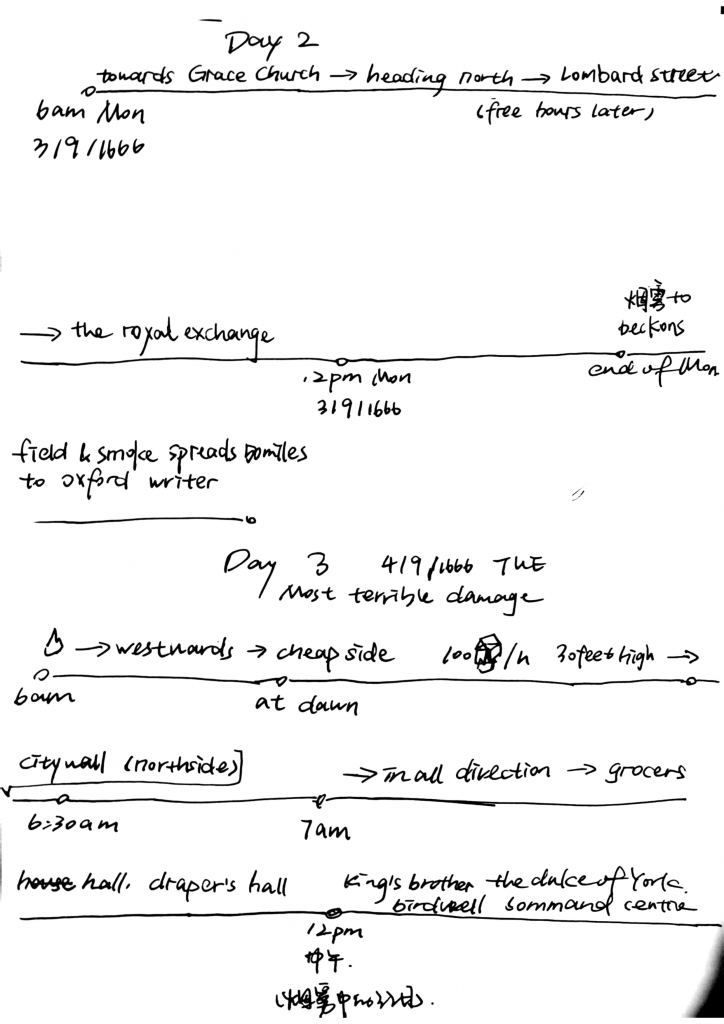 Day 2
towards Grace Church → heading north → Lombard street
6am Mon
(free hours later)
3/9/1666
烟雾 to
beckons
→ the royal exchange
12pm Mon
end of Mon
3/9/1666
field & smoke spreads 50miles
to oxford writer
Day 3 4/9/1666 TUE
Most terrible damage
→ westwards → cheap side 100 /h 30feet high →
6am
at dawn
city wall (northside)
→ in all direction → grocers
6:30am
7am
house hall. draper's hall
King's brother the duke of York.
birdwell command centre
12pm
中午.